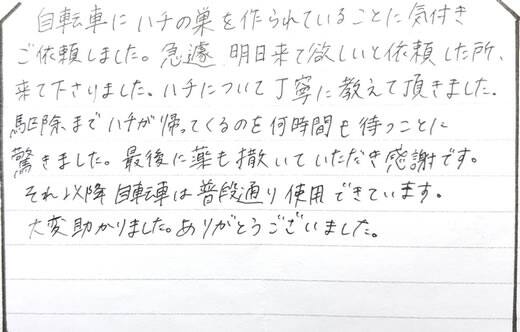 自転車にハチの巣を作られていることに気付き
ご依頼しました。急遽 明日来て欲しいと依頼した所、
来て下さりました。ハチについて丁寧に教えて頂きました。
駆除までハチが帰ってくるのを何時間も待つことに
驚きました。最後に薬も撒いていただき感謝です。
それ以降自転車は普段通り使用できています。
大変助かりました。ありがとうございました。